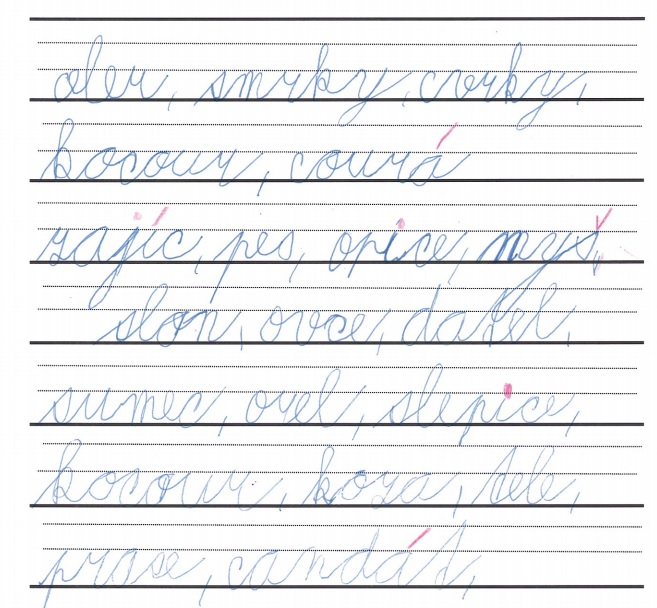 oler, smrky, cvrky,
kocour, courá
zajíc, pes, opice, myš,
slon, ovce, datel,
sumec, orel, slepice,
kocour, koza, tele,
prase, candát,